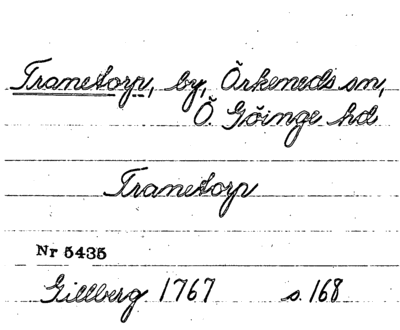 Tranetorp, by, Örkeneds sn,
Ö. Göinge hd
Tranetorp
Nr 5435
Gillberg 1767 s. 168